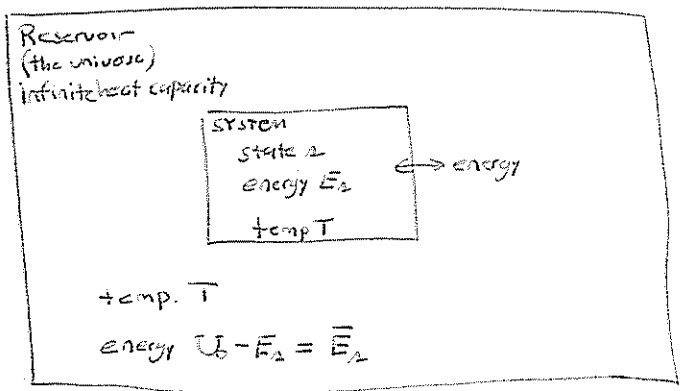 Reservoir
(the universe)
infinite heat capacity
SYSTEM
state s
energy E_s
↔ energy
temp T
temp. T
energy U_0 - E_s = E̅_s